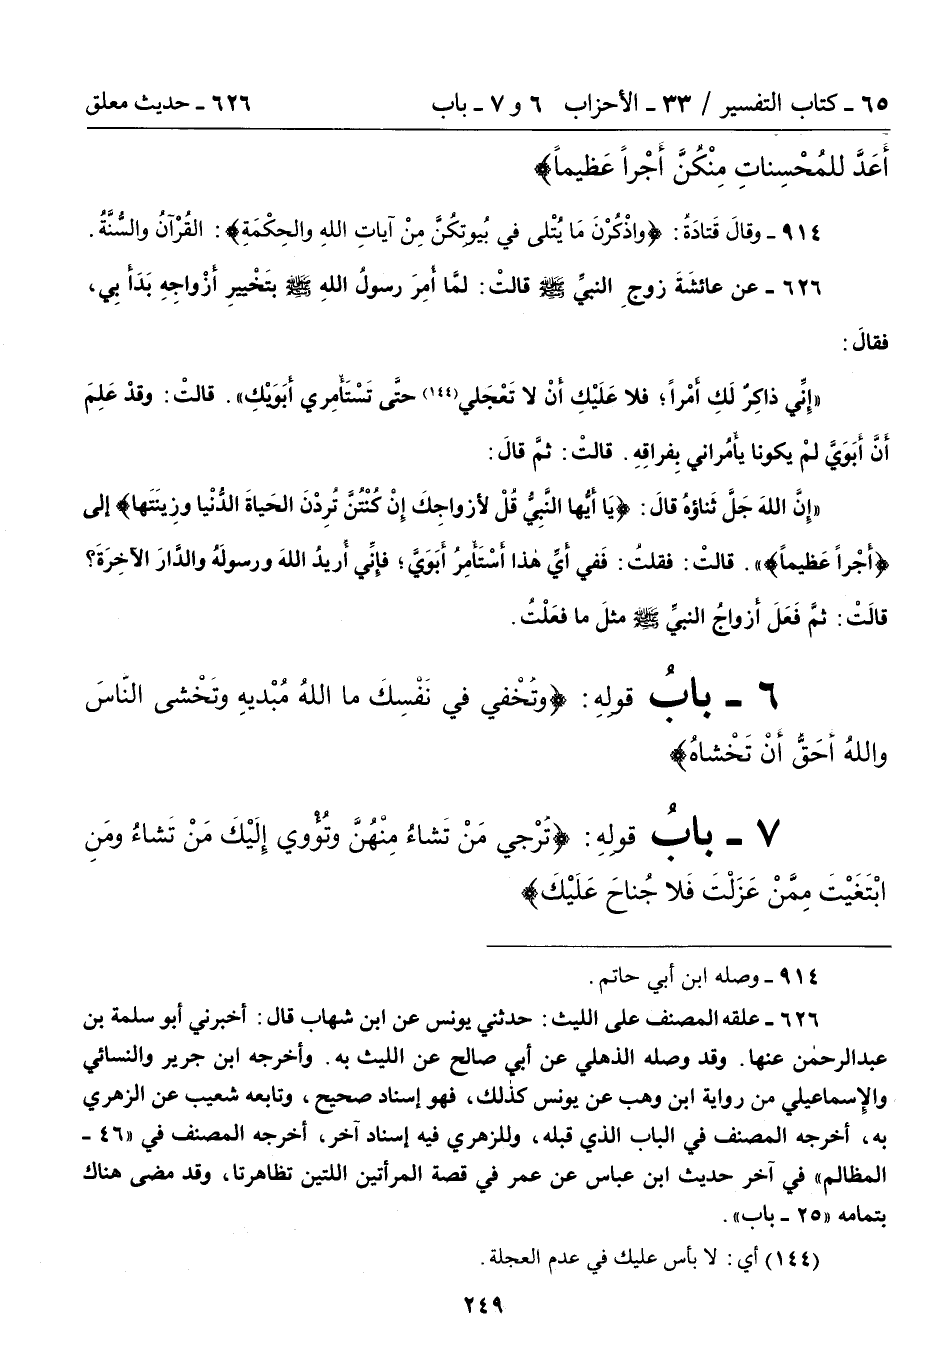 ٦٥ ـ كتاب التفسير / ٣٣ ـ الأحزاب ٦ و ٧ ـ باب ٦٢٦ ـ حديث معلق
أَعَدَّ للمُحْسِناتِ مِنْكُنَّ أَجْراً عَظيماً﴾
٩١٤ ـ وقالَ قَتادَةُ: ﴿واذْكُرْنَ مَا يُتْلى في بُيوتِكُنَّ مِنْ آياتِ اللهِ والحِكْمَةِ﴾: القُرْآنُ والسُّنَّةُ.
٦٢٦ ـ عن عائشَةَ زوجِ النبيِّ ﷺ قالتْ: لمَّا أُمِرَ رسولُ اللهِ ﷺ بتَخْييرِ أزْواجِهِ بَدَأ بي،
فقالَ:
«إنِّي ذاكِرٌ لَكِ أمْراً؛ فلا عَلَيْكِ أنْ لا تَعْجَلي(١٤٤) حتَّى تَسْتَأْمِري أبَوَيْكِ». قالتْ: وقدْ عَلِمَ
أنَّ أبَوَيَّ لمْ يكونا يأْمُراني بِفراقِهِ. قالتْ: ثمَّ قالَ:
«إنَّ اللهَ جَلَّ ثَناؤهُ قالَ: ﴿يَا أيُّها النَّبيُّ قُلْ لأزواجِكَ إنْ كُنْتُنَّ تُرِدْنَ الحَياةَ الدُّنْيا وزِينَتَها﴾ إلى
﴿أجْراً عَظيماً﴾». قالتْ: فقلتُ: ففي أيِّ هٰذا أسْتَأْمِرُ أبَوَيَّ؛ فإنِّي أُريدُ اللهَ ورسولَهُ والدَّارَ الآخِرَةَ؟
قالَتْ: ثمَّ فَعَلَ أزواجُ النبيِّ ﷺ مثلَ ما فعَلْتُ.
٦ ـ بابُ قولِهِ: ﴿وتُخْفي في نَفْسِكَ ما اللهُ مُبْديهِ وتَخْشى النَّاسَ
واللهُ أحَقُّ أنْ تَخْشاهُ﴾
٧ ـ بابُ قولِهِ: ﴿تُرْجي مَنْ تَشاءُ مِنْهُنَّ وتُؤْوي إلَيْكَ مَنْ تَشاءُ ومَنِ
ابْتَغَيْتَ مِمَّنْ عَزَلْتَ فَلا جُناحَ عَلَيْكَ﴾
٩١٤ ـ وصله ابن أبي حاتم.
٦٢٦ ـ علقه المصنف على الليث: حدثني يونس عن ابن شهاب قال: أخبرني أبو سلمة بن
عبدالرحمٰن عنها. وقد وصله الذهلي عن أبي صالح عن الليث به. وأخرجه ابن جرير والنسائي
والإسماعيلي من رواية ابن وهب عن يونس كذلك، فهو إسناد صحيح، وتابعه شعيب عن الزهري
به، أخرجه المصنف في الباب الذي قبله، وللزهري فيه إسناد آخر، أخرجه المصنف في «٤٦ ـ
المظالم» في آخر حديث ابن عباس عن عمر في قصة المرأتين اللتين تظاهرتا، وقد مضى هناك
بتمامه «٢٥ ـ باب».
(١٤٤) أي: لا بأس عليك في عدم العجلة.
٢٤٩